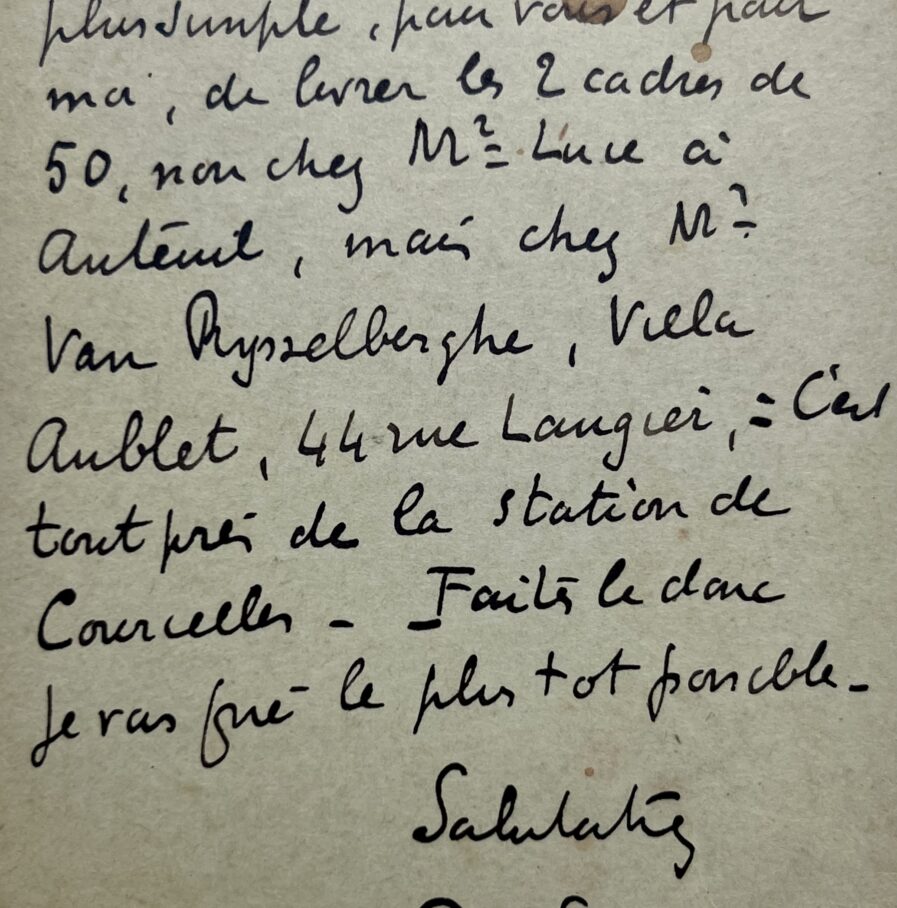 plus simple, pour vous et pour
moi, de livrer les 2 cadres de
50, non chez Mr Luce à
Auteuil, mais chez Mr
Van Rysselberghe, Villa
Aublet, 44 rue Laugier, = C'est
tout près de la station de
Courcelles - Faites le donc
je vous prie le plus tot possible -
Salutations